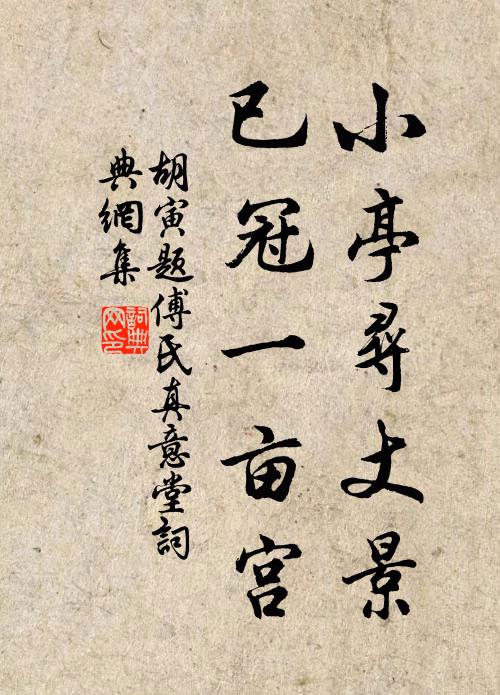 小亭尋丈景
已冠一亩宫
胡寅题傅氏真意堂詞
典網集
詞典
网印